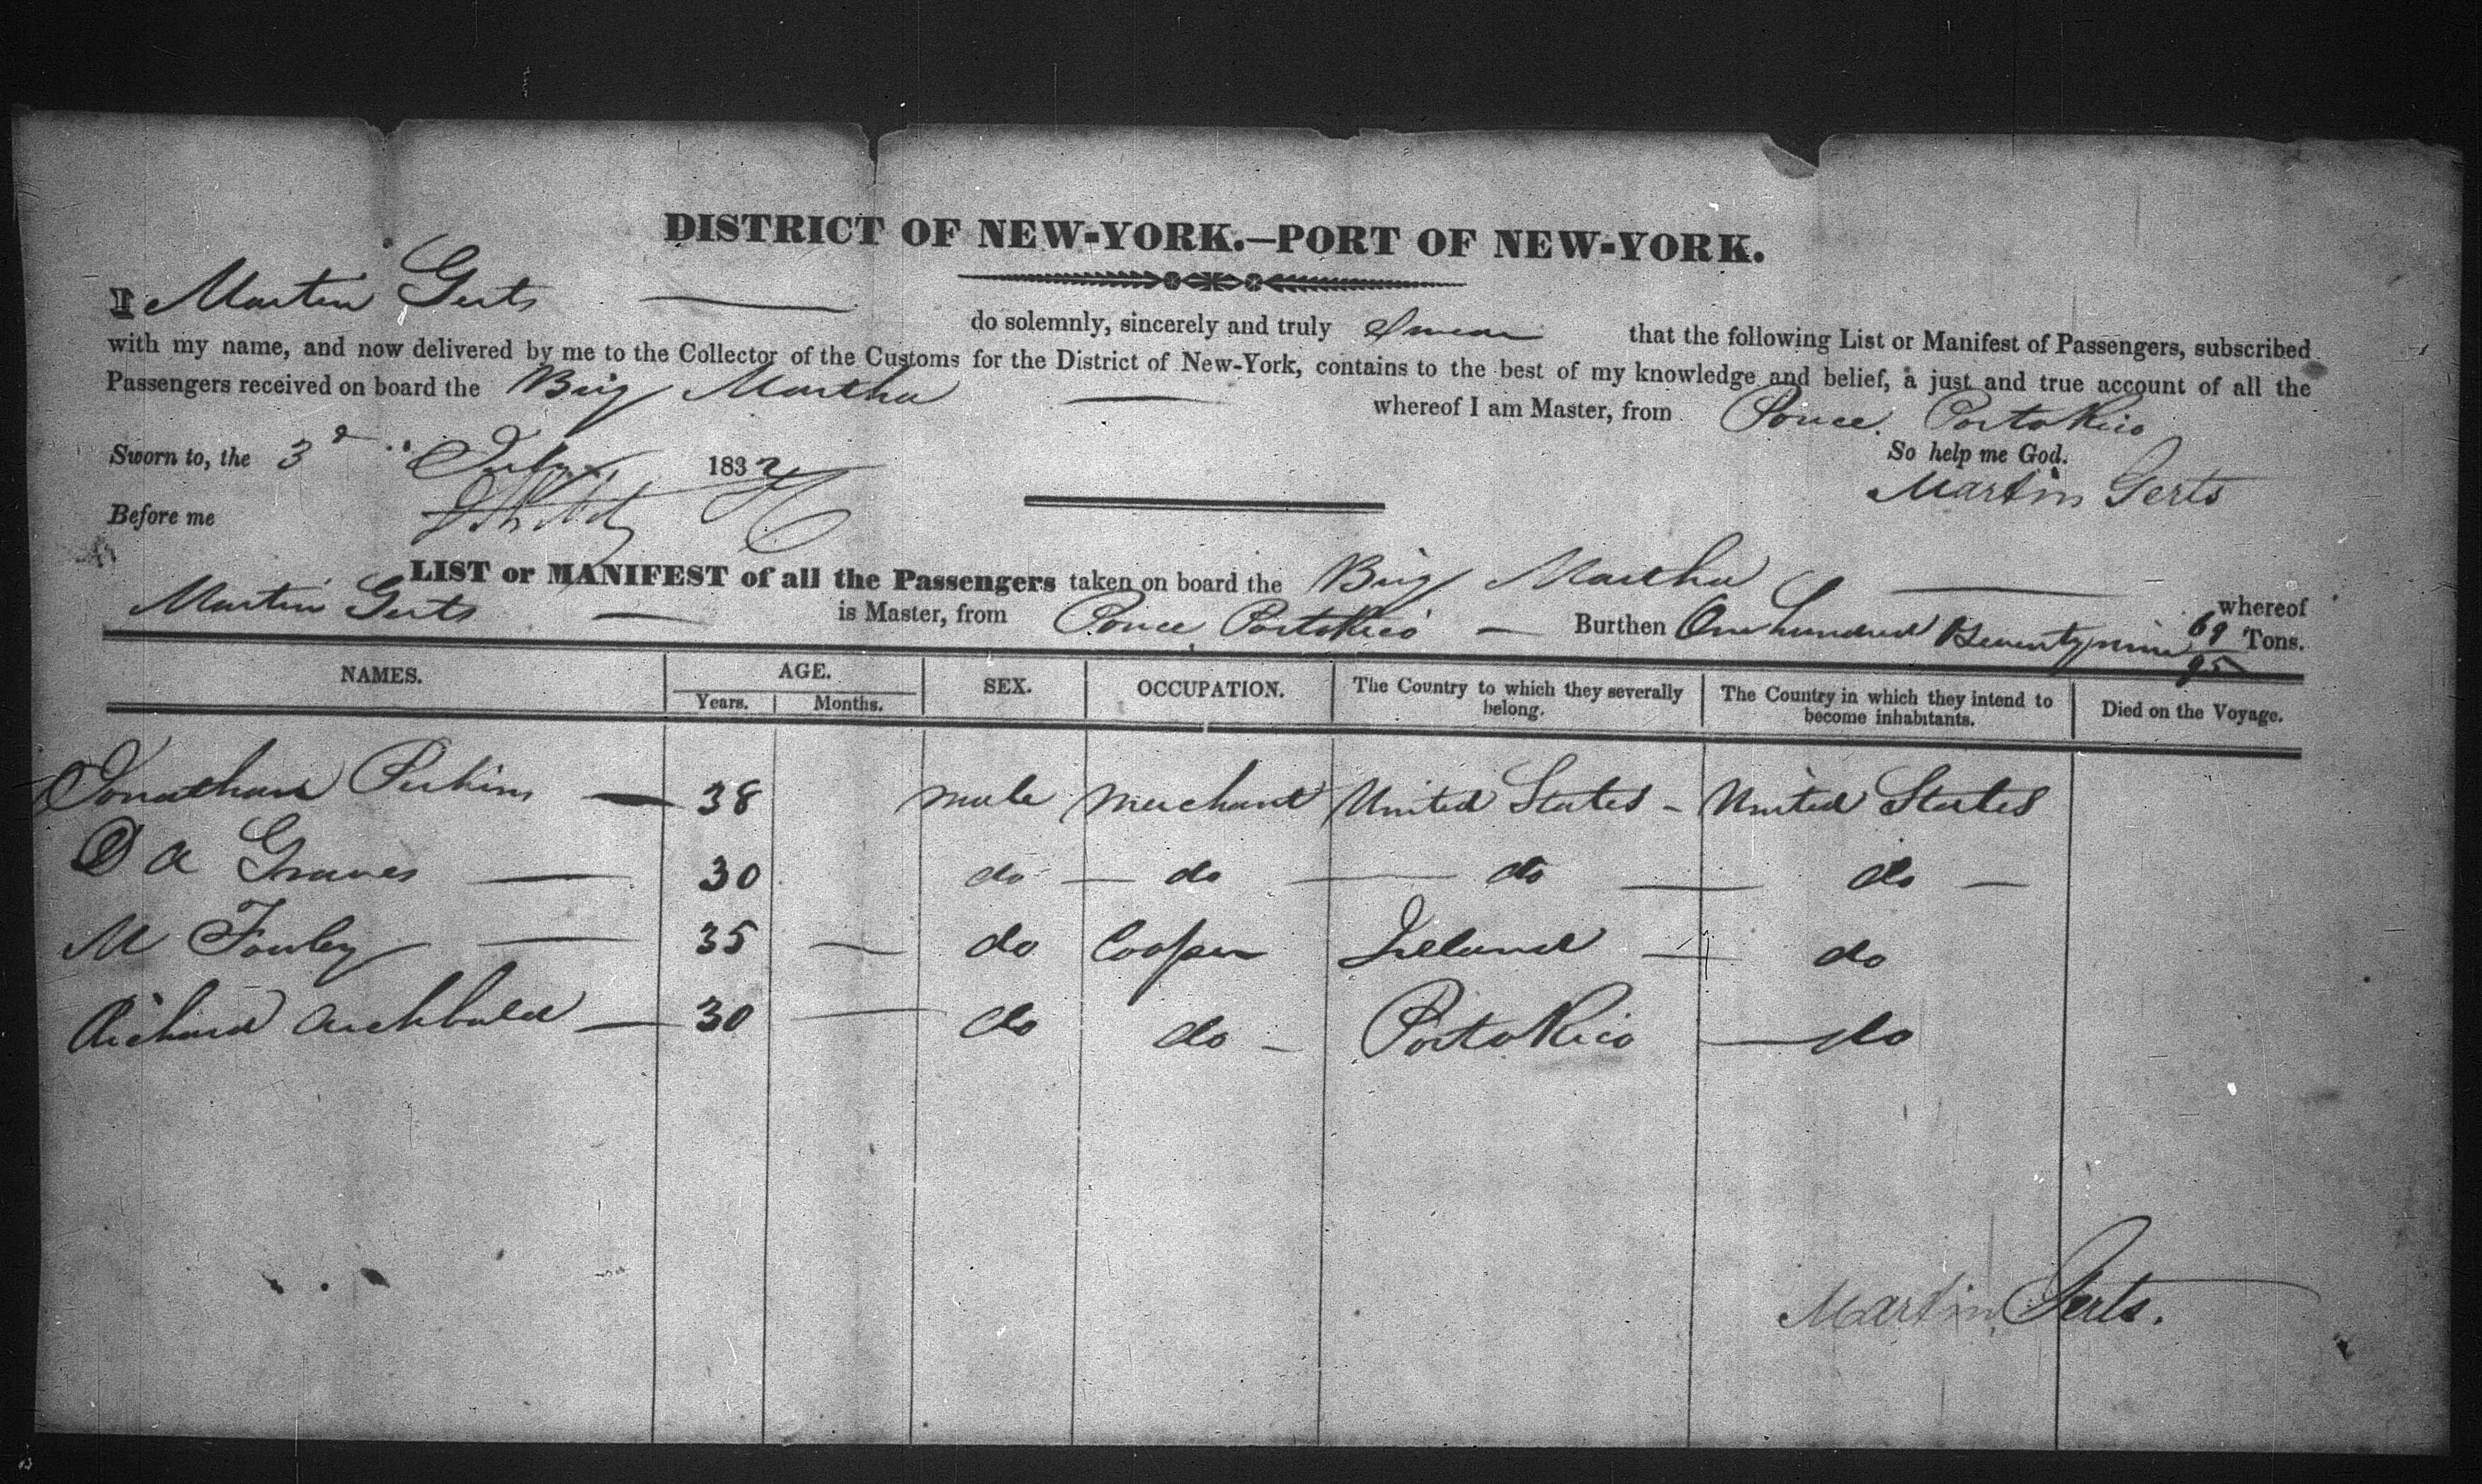 DISTRICT OF NEW-YORK.—PORT OF NEW-YORK.
I Martin Gerts — do solemnly, sincerely and truly Swear that the following List or Manifest of Passengers, subscribed
with my name, and now delivered by me to the Collector of the Customs for the District of New-York, contains to the best of my knowledge and belief, a just and true account of all the
Passengers received on board the Brig Martha — whereof I am Master, from Ponce. Porto Rico
Sworn to, the 3d July 1832 So help me God.
Martin Gerts
Before me
LIST or MANIFEST of all the Passengers taken on board the Brig Martha — whereof
Martin Gerts — is Master, from Ponce Porto Rico — Burthen One Hundred Seventy nine 69/95 Tons.
NAMES. AGE. SEX. OCCUPATION. The Country to which they severally belong. The Country in which they intend to become inhabitants. Died on the Voyage.
Years. Months.
Jonathan Perkins — 38 male Merchant United States - United States
D A Graves — 30 do — do — do — do —
M Fowley — 35 — do Cooper Ireland — do
Richard Archbald — 30 — do do - Porto Rico — do
Martin Gerts.